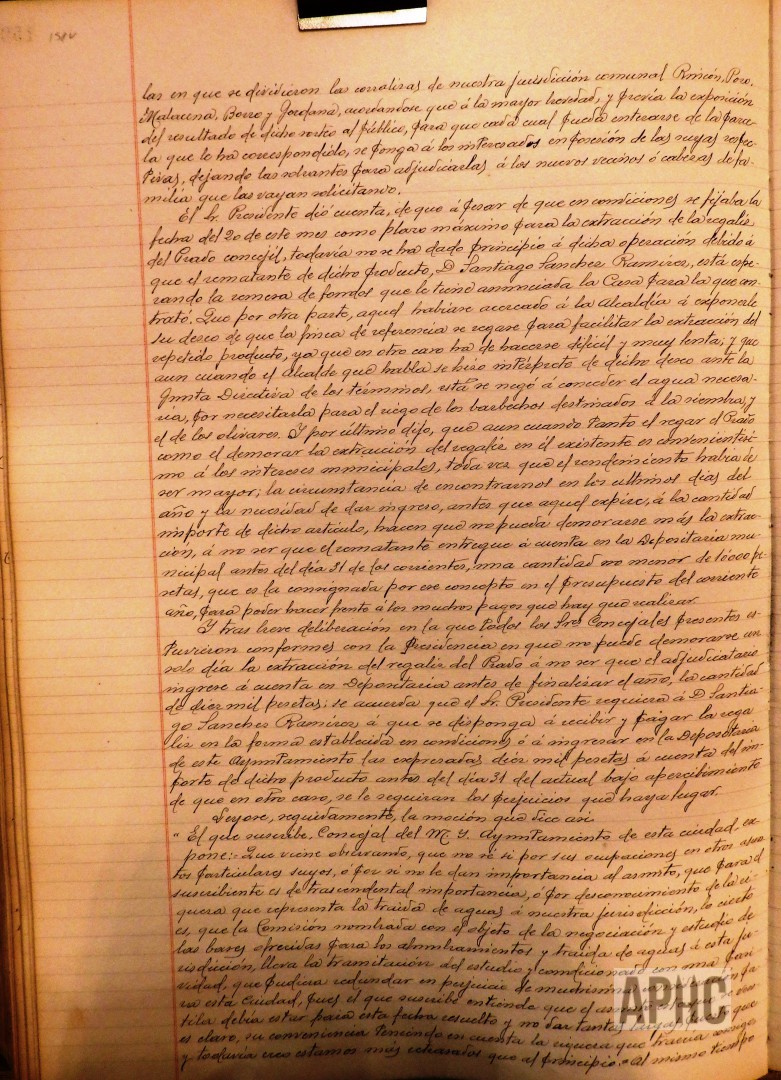 las en que se dividieron las corralizas de nuestra jurisdicción comunal Rincón, Poro,
Malacena, Borro y Jordana, acordándose que á la mayor brevedad, y previa la exposición
del resultado de dicho sorteo al público, para que cada cual pueda enterarse de la parce-
la que le ha correspondido, se ponga á los interesados en posesión de las suyas respec-
tivas, dejando las sobrantes para adjudicarlas á los nuevos vecinos ó cabezas de fa-
milia que las vayan solicitando.
El Sr. Presidente dió cuenta, de que á pesar de que en condiciones se fijaba la
fecha del 20 de este mes como plazo máximo para la extracción de la regaliz
del Prado concejil, todavía no se ha dado principio á dicha operación debido á
que el rematante de dicho producto, D Santiago Sanchez Ramirez, está espe-
rando la remesa de fondos que le tiene anunciada la Casa para la que con-
trató. Que por otra parte, aquel habíase acercado á la Alcaldía á exponerle
su deseo de que la finca de referencia se regase para facilitar la extracción del
repetido producto, ya que en otro caso ha de hacerse dificil y muy lenta; y que
aun cuando el alcalde que habla se hizo intérprete de dicho deseo ante la
Junta Directiva de los términos, está se negó á conceder el agua necesa-
ria, por necesitarla para el riego de los barbechos destinados á la siembra, y
el de los olivares. Y por último dijo, que aun cuando tanto el regar el Prado
como el demorar la extracción del regaliz en él existente es convenientísi-
mo á los intereses municipales, toda vez que el rendimiento habría de
ser mayor; la circunstancia de encontrarnos en los ultimos dias del
año y la necesidad de dar ingreso, antes que aquel expire, á la cantidad
importe de dicho artículo, hacen que no pueda demorarse más la extrac-
ción, á no ser que el rematante entregue á cuenta en la Depositaria mu-
nicipal antes del día 31 de los corrientes, una cantidad no menor de 10000 pe-
setas, que es la consignada por ese concepto en el presupuesto del corriente
año, para poder hacer frente á los muchos pagos que hay que realizar.
Y tras breve deliberación en la que todos los Sres Concejales presentes es-
tuvieron conformes con la Presidencia en que no puede demorarse un
solo día la extracción del regaliz del Prado á no ser que el adjudicatario
ingrese á cuenta en Depositaria antes de finalizar el año, la cantidad
de diez mil pesetas; se acuerda que el Sr. Presidente requiera á D Santia-
go Sanchez Ramirez á que se disponga á recibir y pagar la rega
liz en la forma establecida en condiciones ó á ingresar en la Depositaria
de este Ayuntamiento las expresadas diez mil pesetas á cuenta del im-
porte de dicho producto antes del día 31 del actual bajo apercibimiento
de que en otro caso, se le seguiran los perjuicios que haya lugar.
Leyose, seguidamente, la moción que dice asi:
" El que suscribe, Concejal del M. Y. Ayuntamiento de esta ciudad, ex-
pone:- Que viene observando, que no sé si por sus ocupaciones en otros asun
tos particulares suyos, ó por si no le dan importancia al asunto, que para el
suscribiente es de trascendental importancia, ó por desconocimiento de la ri-
queza que representa la traida de aguas á nuestra jurisdicción, lo cierto
es, que la Comisión nombrada con el objeto de la negociación y estudio de
las bases ofrecidas para los alumbramientos y traida de aguas á esta ju-
risdicción, lleva la tramitación del estudio y condicionado con una par-
vidad, que pudiera redundar en perjuicio de
va esta Ciudad, pues el que suscribe entiende que el asunto
tila debía estar para esta fecha resuelto y no dar tantas largas
es claro, su conveniencia teniendo en cuenta la riqueza que traería consigo,
y todavía creo estamos más retrasados que al principio. = Al mismo tiempo
APHC